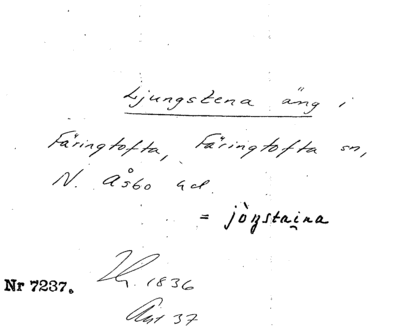 Ljungstena äng i
Färingtofta, Färingtofta sn,
N. Åsbo hd.
= jòŋstai̯na
Nr 7237.
1836
37